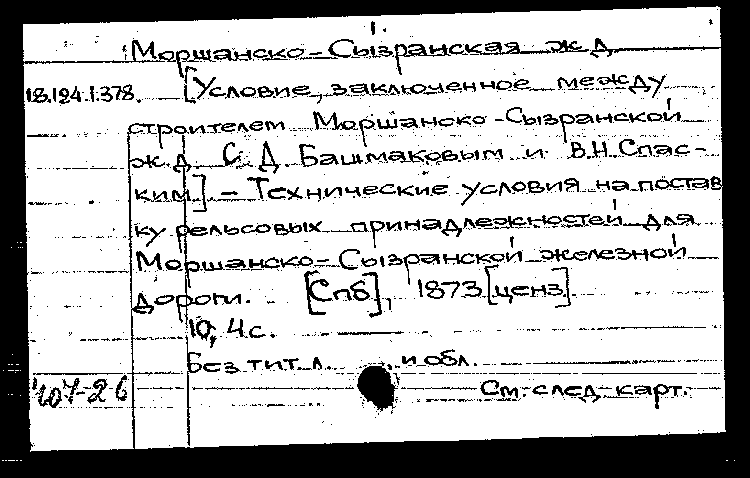 1.
Моршанско-Сызранская ж.д.
18.124.1.378. [Условие, заключенное между
строителем Моршанско-Сызранской
ж.д. С.Д. Башмаковым и В.Н. Спас-
ким] - Технические условия на постав
ку рельсовых принадлежностей для
Моршанско-Сызранской железной
дороги. [Спб], 1873 [ценз].
10, 4 с.
Без тит. л. и обл.
См. след. карт.
407-26